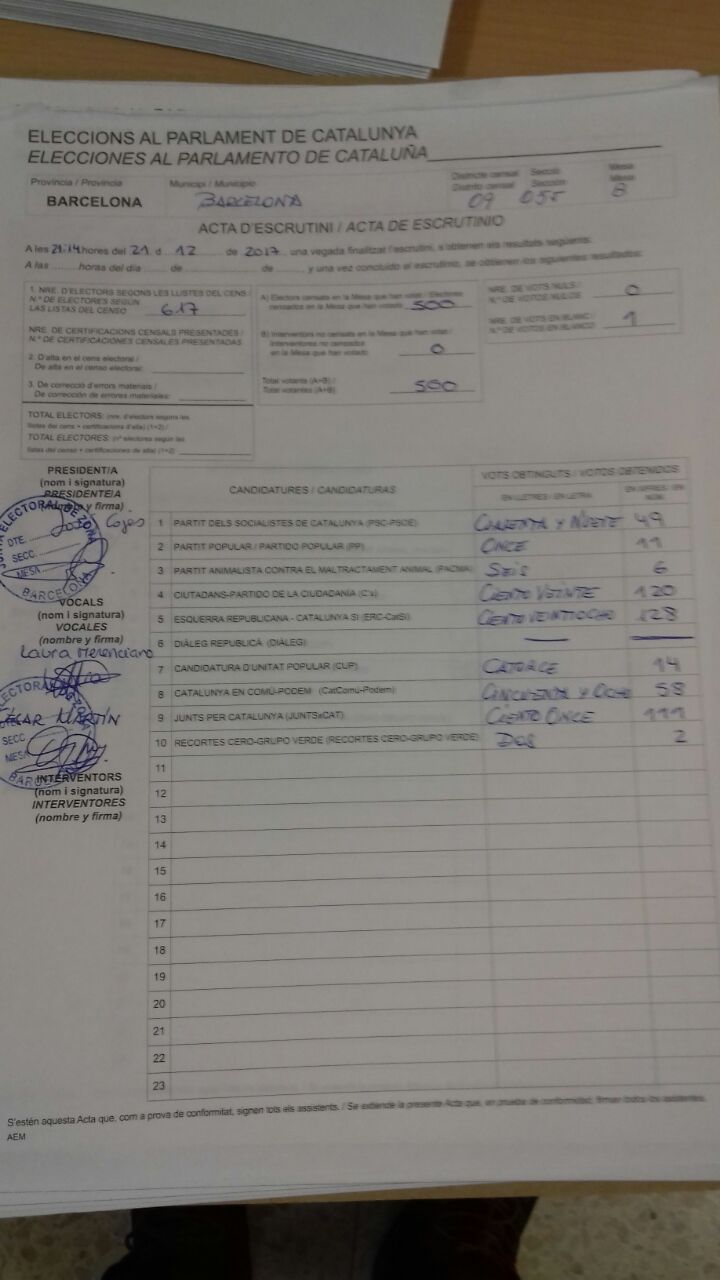 ELECCIONS AL PARLAMENT DE CATALUNYA
ELECCIONES AL PARLAMENTO DE CATALUÑA
Provincia / Provincia Municipi / Municipio Districte censal Secció Mesa
Distrito censal Sección Mesa
BARCELONA BARCELONA 09 055 B
ACTA D'ESCRUTINI / ACTA DE ESCRUTINIO
A les 21:14 hores del 21 d 12 de 2017, una vegada finalitzat l'escrutini, s'obtenen els resultats següents:
A las horas del día de de y una vez concluido el escrutinio, se obtienen los siguientes resultados:
1. NRE. D'ELECTORS SEGONS LES LLISTES DEL CENS /
N.º DE ELECTORES SEGÚN
LAS LISTAS DEL CENSO 617
NRE. DE CERTIFICACIONS CENSALS PRESENTADES /
N.º DE CERTIFICACIONES CENSALES PRESENTADAS
2. D'alta en el cens electoral /
De alta en el censo electoral:
3. De correcció d'errors materials /
De corrección de errores materiales:
TOTAL ELECTORS: (nre. d'electors segons les
llistes del cens + certificacions d'alta) (1+2) /
TOTAL ELECTORES: (nº electores según las
listas del censo + certificaciones de alta) (1+2)
A) Electors censats en la Mesa que han votat / Electores
censados en la Mesa que han votado 500
B) Interventors no censats en la Mesa que han votat /
Interventores no censados
en la Mesa que han votado 0
Total votants (A+B) /
Total votantes (A+B) 500
NRE. DE VOTS NULS /
N.º DE VOTOS NULOS 0
NRE. DE VOTS EN BLANC /
N.º DE VOTOS EN BLANCO 1
PRESIDENT/A
(nom i signatura)
PRESIDENTE/A
(nombre y firma)
ELECTORAL DE ZONA
DTE.
SECC.
MESA
BARCELONA
VOCALS
(nom i signatura)
VOCALES
(nombre y firma)
Laura Merenciano
ELECTORAL
MARTÍN
SECC
MESA
INTERVENTORS
(nom i signatura)
INTERVENTORES
(nombre y firma)
CANDIDATURES / CANDIDATURAS VOTS OBTINGUTS / VOTOS OBTENIDOS
EN LLETRES / EN LETRA EN XIFRES / EN NÚM.
1 PARTIT DELS SOCIALISTES DE CATALUNYA (PSC-PSOE) CUARENTA Y NUEVE 49
2 PARTIT POPULAR / PARTIDO POPULAR (PP) ONCE 11
3 PARTIT ANIMALISTA CONTRA EL MALTRACTAMENT ANIMAL (PACMA) SEIS 6
4 CIUTADANS-PARTIDO DE LA CIUDADANÍA (C's) CIENTO VEINTE 120
5 ESQUERRA REPUBLICANA - CATALUNYA SÍ (ERC-CatSí) CIENTO VEINTIOCHO 128
6 DIÀLEG REPUBLICÀ (DIÀLEG)
7 CANDIDATURA D'UNITAT POPULAR (CUP) CATORCE 14
8 CATALUNYA EN COMÚ-PODEM (CatComú-Podem) CINCUENTA Y OCHO 58
9 JUNTS PER CATALUNYA (JUNTSxCAT) CIENTO ONCE 111
10 RECORTES CERO-GRUPO VERDE (RECORTES CERO-GRUPO VERDE) DOS 2
11
12
13
14
15
16
17
18
19
20
21
22
23
S'estén aquesta Acta que, com a prova de conformitat, signen tots els assistents. / Se extiende la presente Acta que, en prueba de conformidad, firman todos los asistentes.
AEM